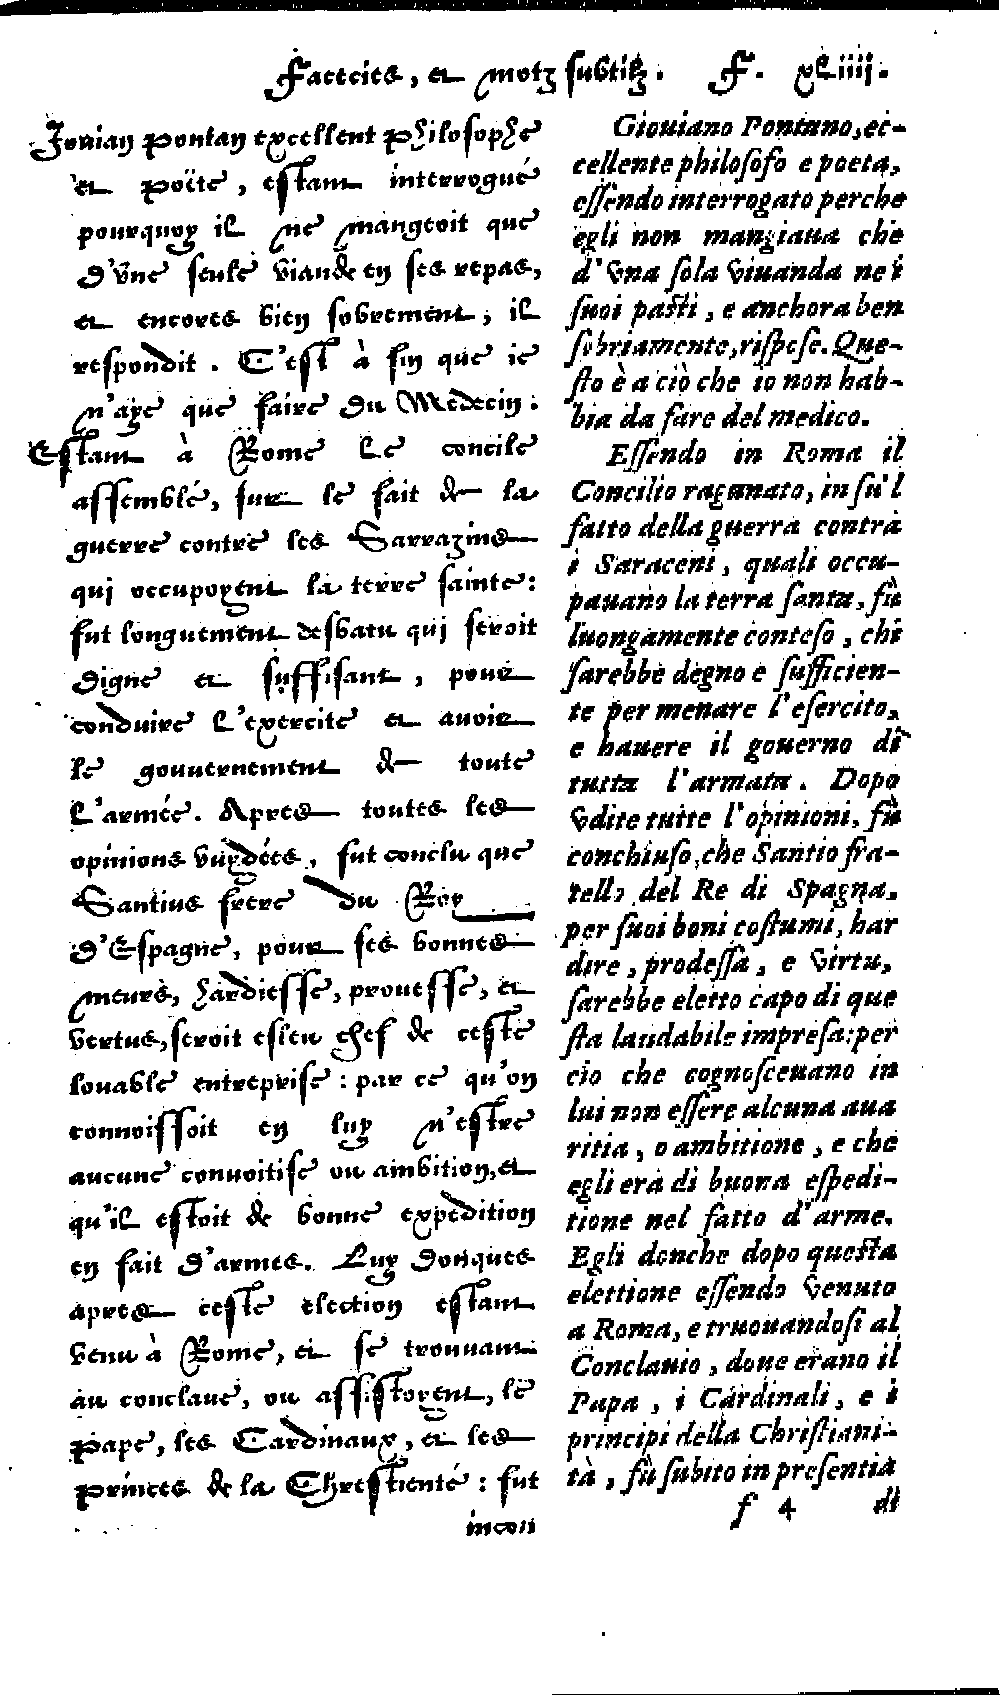 Faecties, et motz subtilz. F. xliiij.
Jovian pontan excellent philosophe
et poëte, estant interrogué
pourquoy il ne mangeoit que
d'une seule viande en ses repas,
et encores bien sobrement, il
respondit. C'est à fin que ie
n'aye que faire du Medecin.
Estant à Rome le concile
assemblé, sur le fait de la
guerre contre les Sarrazins
qui occupoyent la terre sainte:
fut longuement desbatu qui seroit
digne et suffisant, pour
conduire l'exercite et avoir
le gouvernement de toute
l'armée. Apres toutes les
opinions vuydées, fut conclu que
Santius frere du Roy
d'Espagne, pour ses bonnes
meurs, hardiesse, prouesse, et
vertus, seroit esleu chef de ceste
louable entreprise: par ce qu'on
connoissoit en luy n'estre
aucune convoitise ou ambition, et
qu'il estoit de bonne expedition
en fait d'armes. Luy donques
apres ceste election estant
venu à Rome, et se trouvant
au conclave, ou assistoyent, le
pape, les Cardinaux, et les
princes de la Chrestienté: fut
incon
Giouiano Pontano, ec-
cellente philosofo e poeta,
essendo interrogato perche
egli non mangiaua che
d'vna sola viuanda ne i
suoi pasti, e anchora ben
sobriamente, rispose. Que-
sto è a ciò che io non hab-
bia da fare del medico.
Essendo in Roma il
Concilio ragunato, in su'l
fatto della guerra contra
i Saraceni, quali occu-
pauano la terra santa, fù
luongamente conteso, chi
sarebbe degno e sufficien-
te per menare l'esercito,
e hauere il gouerno di
tutta l'armata. Dopo
vdite tutte l'opinioni, fù
conchiuso, che Santio fra-
tello del Re di Spagna,
per suoi boni costumi, har
dire, prodessa, e virtu,
sarebbe eletto capo di que
sta laudabile impresa: per
cio che cognosceuano in
lui non essere alcuna aua
ritia, o ambitione, e che
egli era di buona espedi-
tione nel fatto d'arme.
Egli donche dopo questa
elettione essendo venuto
a Roma, e truouandosi al
Conclauio, doue erano il
Papa, i Cardinali, e i
principi della Christiani-
tà, fù subito in presentia
f 4 di